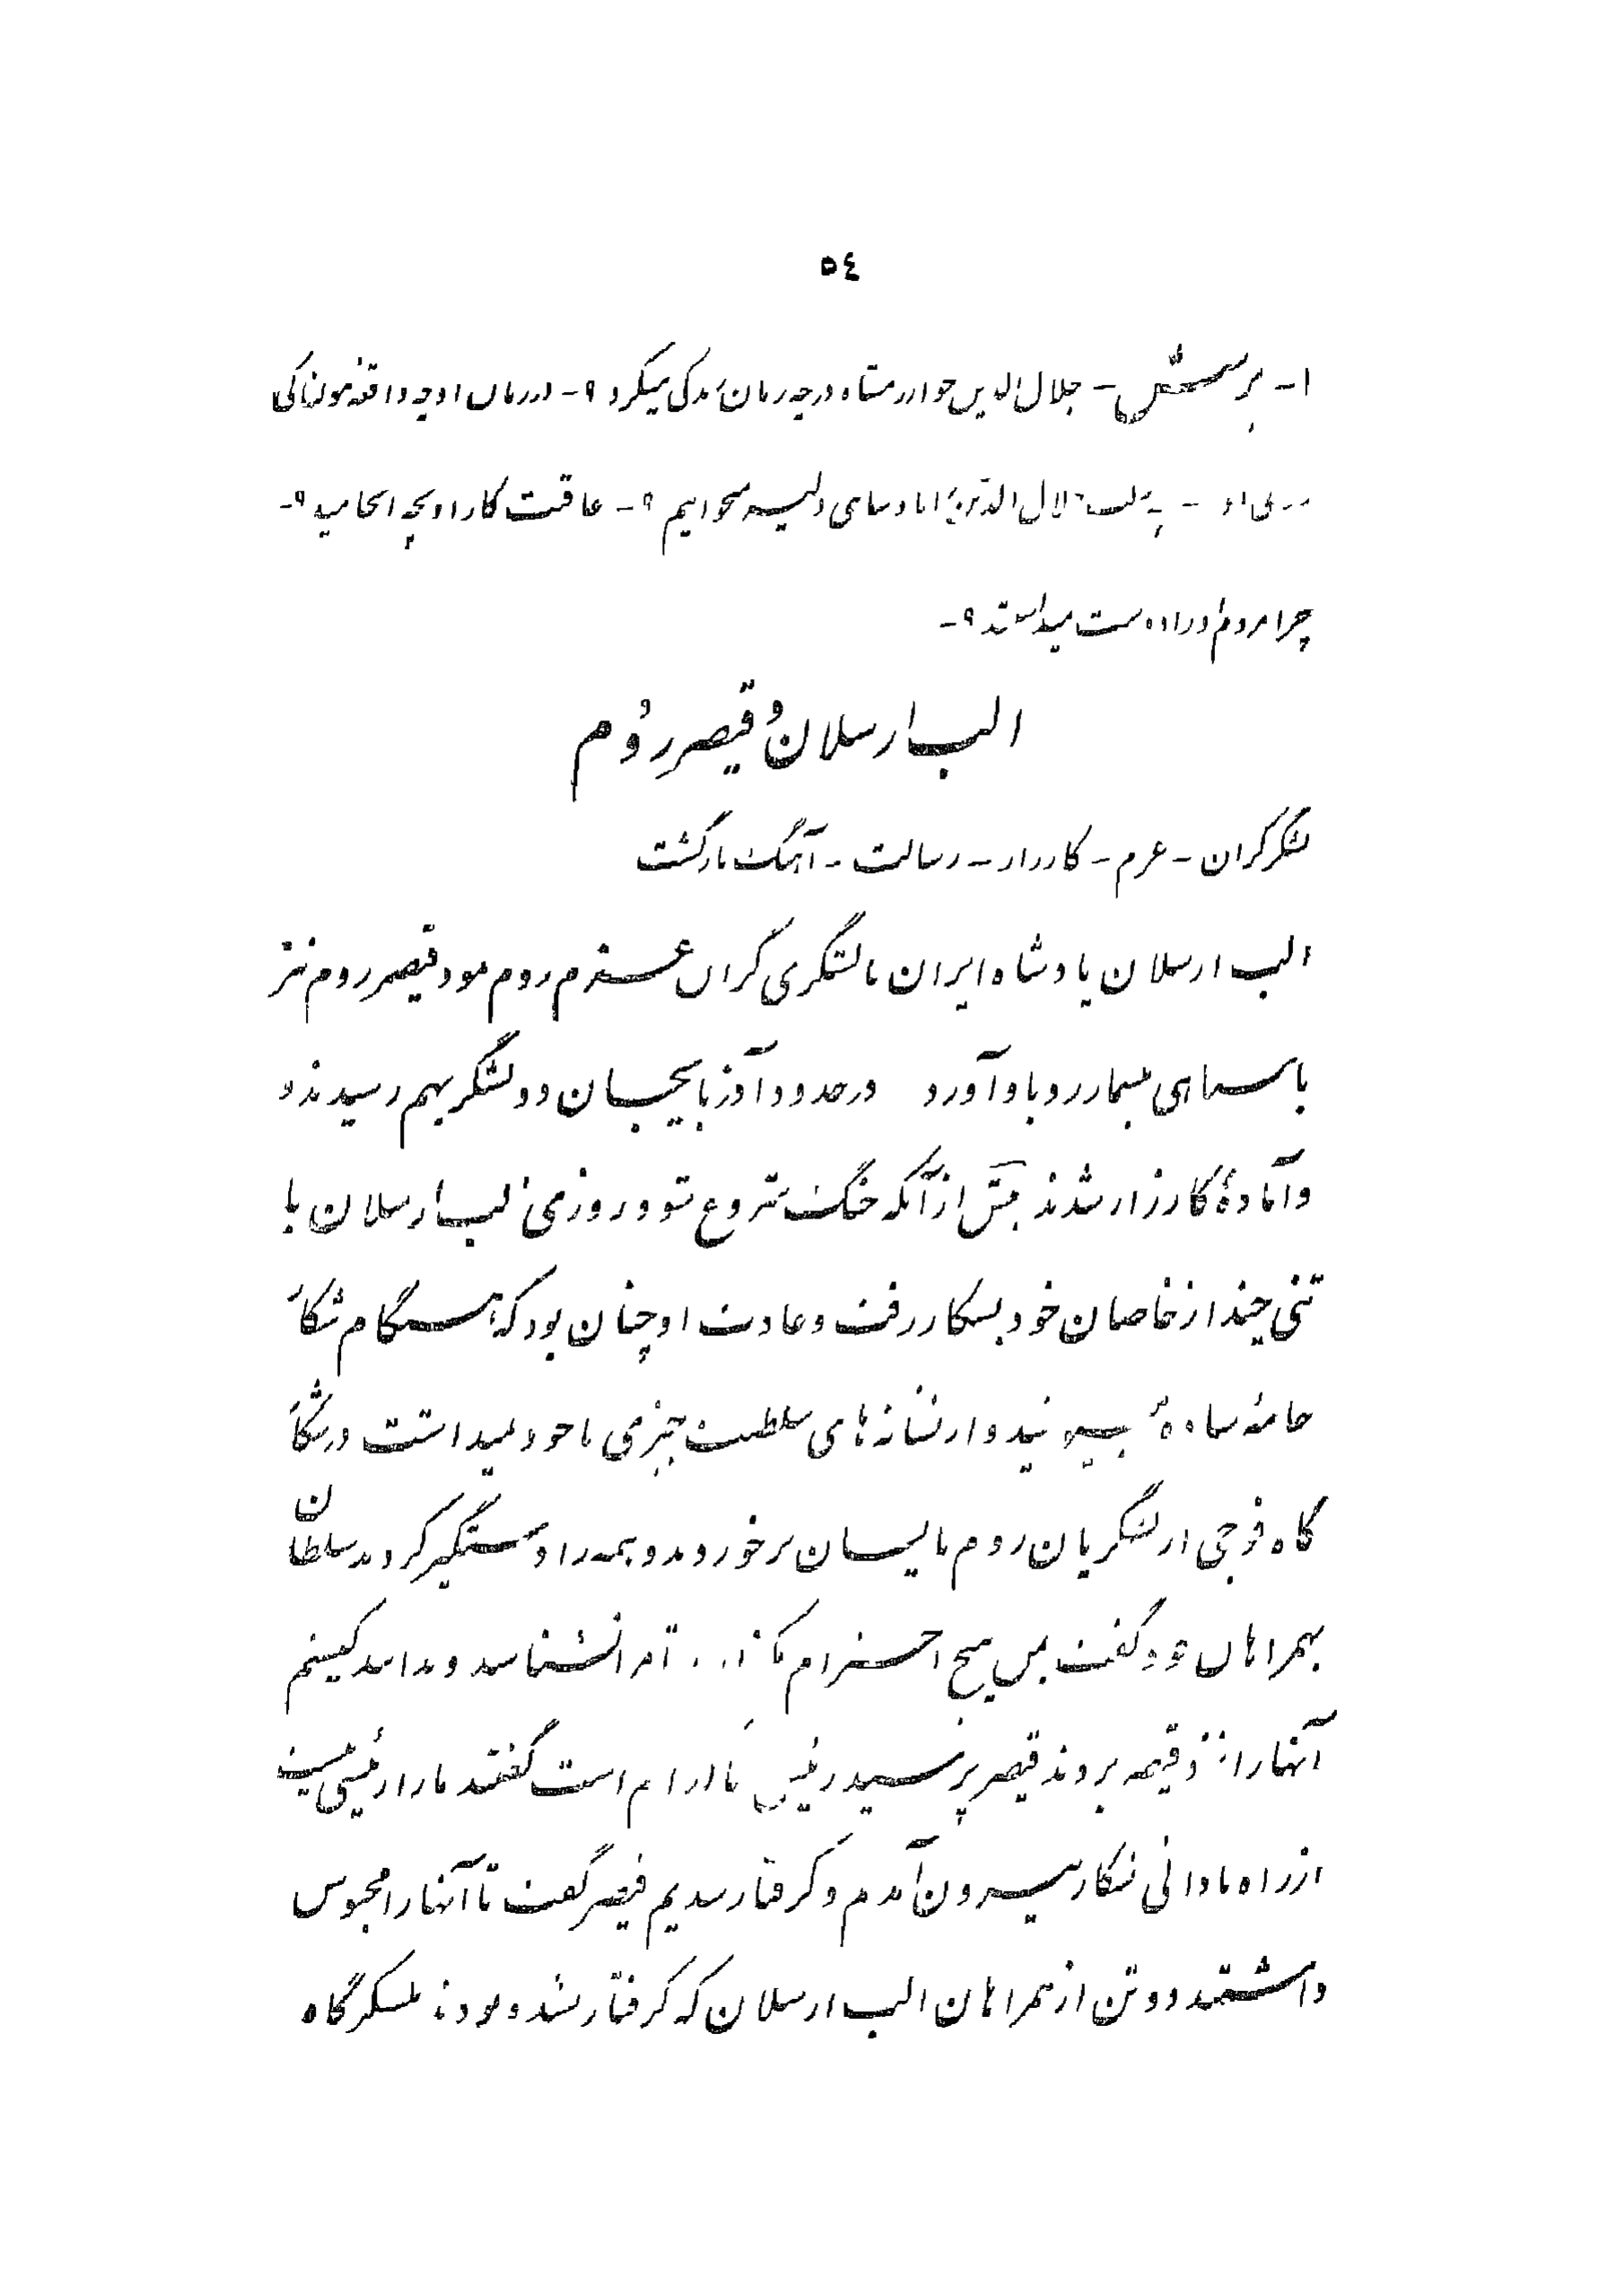 ٥٤
١- پرسش - جلال الدین خوارزمشاه در چه زمان زندگی میکرد ؟- در زمان او چه واقعه هولناکی
جلال الدین را پادشاهی دلیر میخوانیم ؟- عاقبت کار او بچه انجامید ؟-
چرا مردم او را دوست میداشتند ؟-
الب ارسلان و قیصر روم
لشکر گران - عزم - کارزار - رسالت - آهنگ بازگشت
الب ارسلان پادشاه ایران با لشگری گران عزم روم نمود قیصر روم نیز
با سپاهی بیشمار رو باو آورد در حدود آذربایجان دو لشگر بهم رسیدند و
و آمادهٔ کارزار شدند پیش از آنکه جنگ شروع شود روزی الب ارسلان با
تنی چند از خاصان خود بشکار رفت و عادت او چنان بود که هنگام شکار
جامهٔ سادهٔ میپوشید و از نشانه‌های سلطنت چیزی با خود نمیداشت در شکار
گاه فوجی از لشگریان روم بایشان برخوردند و همه را دستگیر کردند سلطان
بهمراهان خود گفت بمن هیچ احترام مگذارید تا مرا نشناسند و ندانند کیستم
آنها را نزد قیصر بردند قیصر پرسید رئیس شما کدام است گفتند ما را رئیسی نیست
از راه نادانی بشکار بیرون آمدیم و گرفتار شدیم قیصر گفت تا آنها را محبوس
داشتند دو تن از همراهان الب ارسلان که گرفتار نشده بودند بلشکرگاه